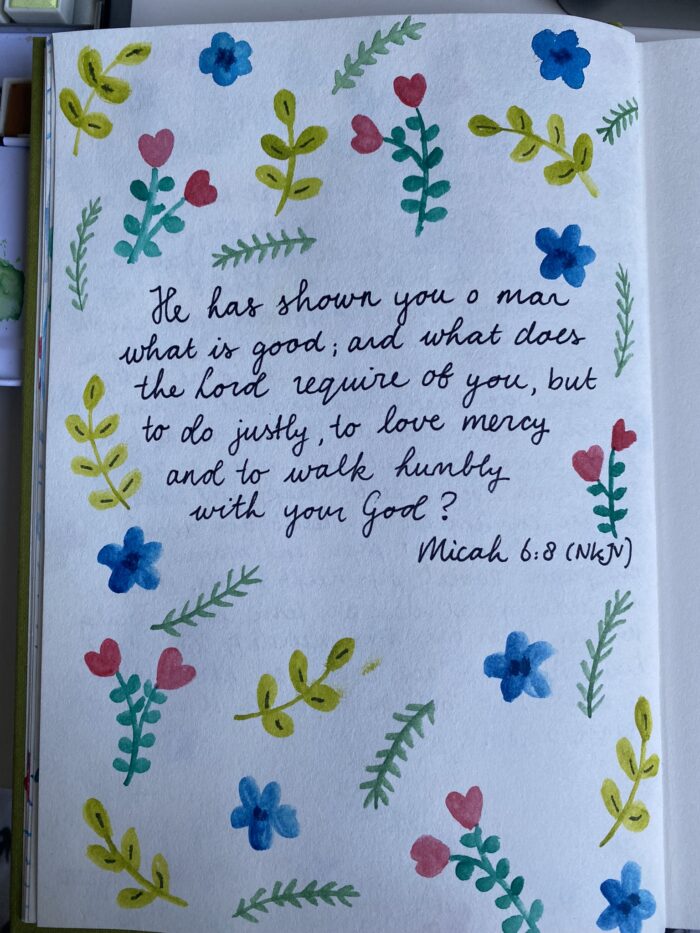 He has shown you o man
what is good; and what does
the Lord require of you, but
to do justly, to love mercy
and to walk humbly
with your God?
Micah 6:8 (NKJV)